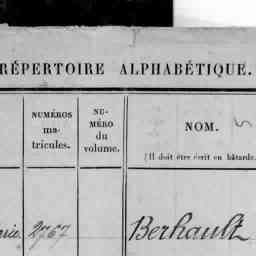 RÉPERTOIRE ALPHABÉTIQUE.
NUMÉROS
ma-
tricules.
NU-
MÉRO
du
volume.
NOM.
(Il doit être écrit en bâtarde.
2767
Berhault